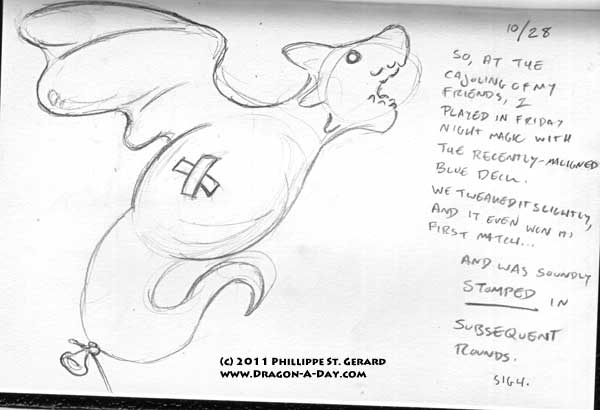 10/28
SO, AT THE
CAJOLING OF MY
FRIENDS, I
PLAYED IN FRIDAY
NIGHT MAGIC WITH
THE RECENTLY-MALIGNED
BLUE DECK.
WE TWEAKED IT SLIGHTLY,
AND IT EVEN WON ITS
FIRST MATCH...
AND WAS SOUNDLY
STOMPED IN
SUBSEQUENT
ROUNDS.
SIGH.
(c) 2011 Phillippe St. Gerard
www.Dragon-A-Day.com